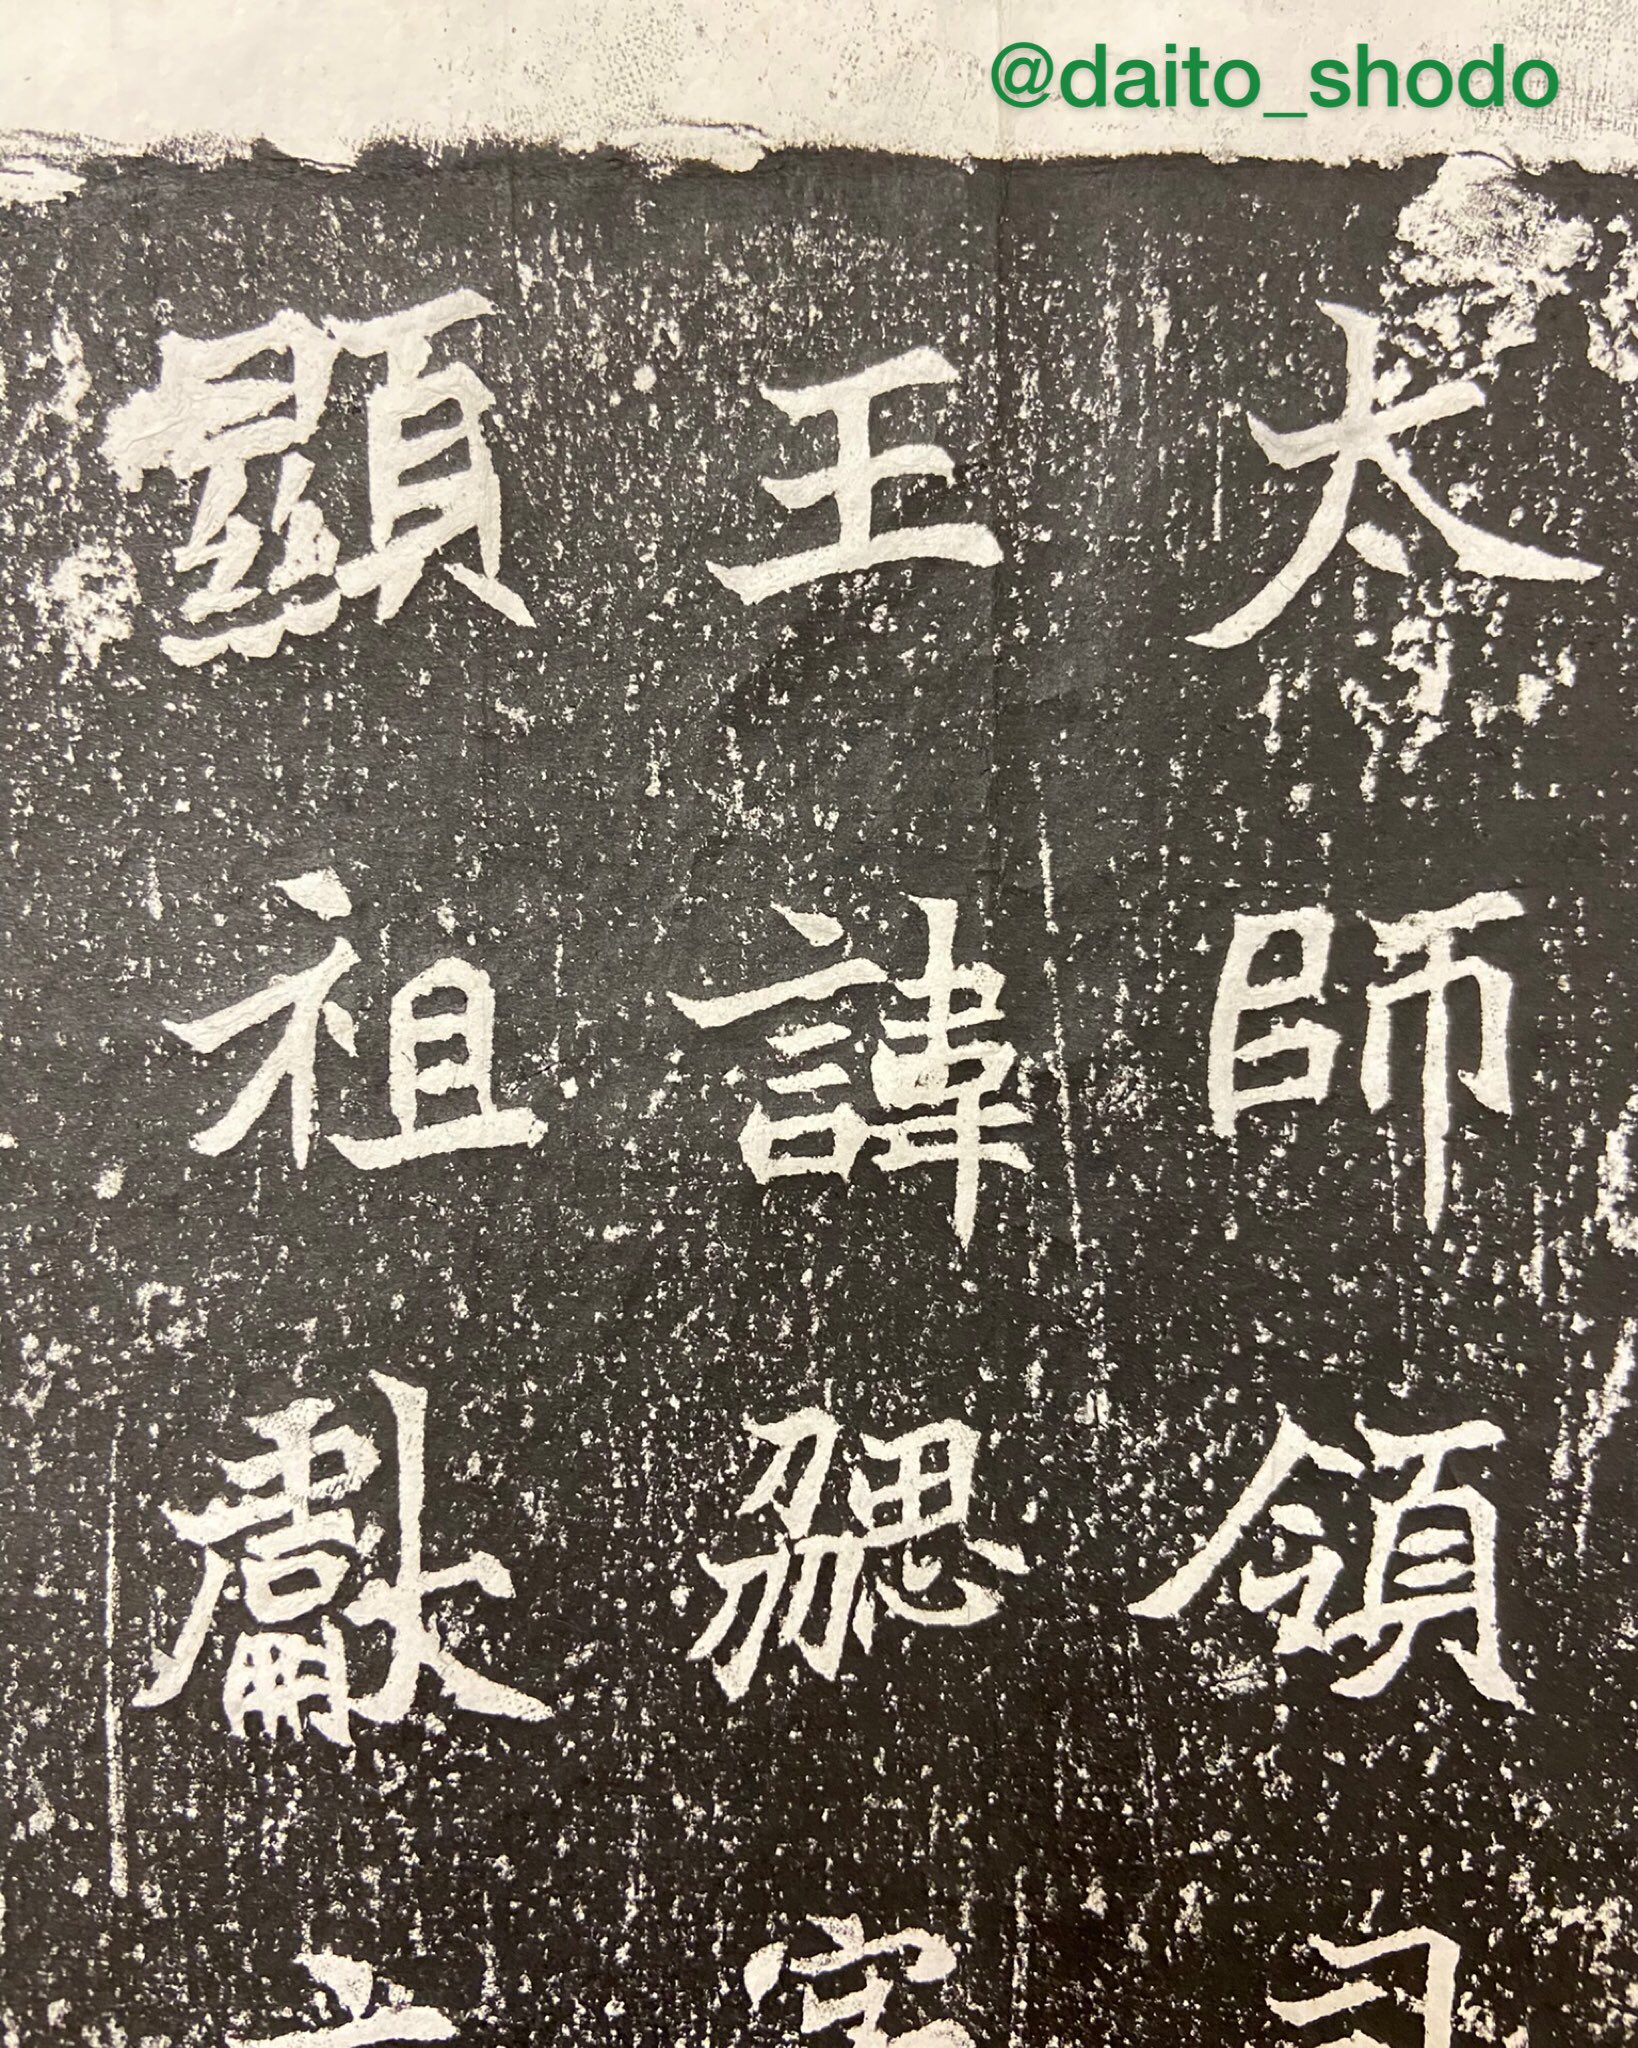 @daito_shodo
太師領司
王諱勰字
顯祖獻文